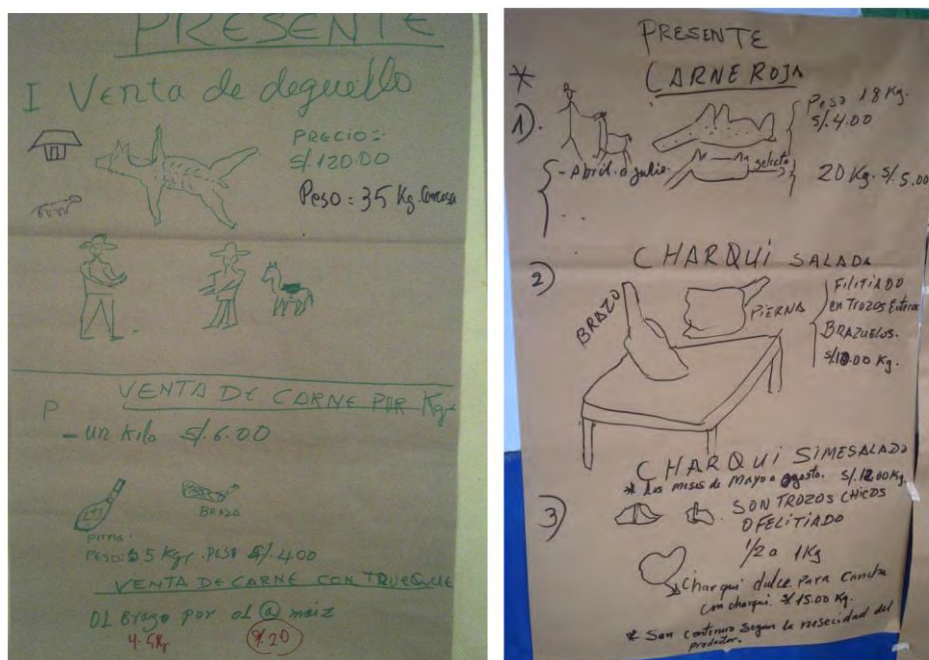 PRESENTE
I Venta de deguello
PRECIO:
S/.120.00
Peso = 35 Kg.
P VENTA DE CARNE POR Kg.
- un kilo S/. 6.00
BRAZO
PIERNA.
PESO: 5 Kg. S/. 4.00
VENTA DE CARNE CON TRUEQUE
01 Brazo por 01 @ maiz
4.5Kg S/.20
PRESENTE
* CARNE ROJA
1). Peso 18 Kg.
S/.4.00
- Abril a julio. selecta 20 Kg. S/. 5.00
2) CHARQUI SALADA
BRAZO PIERNA
FILITIADO
en TROZOS Enteros
BRAZUELOS.
S/.10.00 Kg.
CHARQUI SIMESALADO
* Los meses de Mayo a agosto. S/.12.00 Kg.
3) SON TROZOS CHICOS
O FELITIADO
1/2 a 1Kg
Charqui dulce para Cancha
con charqui. S/ 15.00 Kg.
* Son continuo segun la nesecidad del
productor.